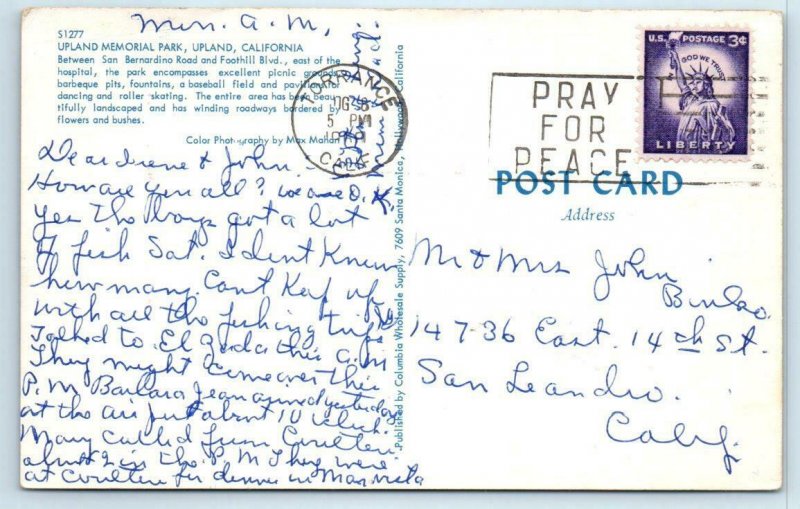 Mon. A.M.
S1277
UPLAND MEMORIAL PARK, UPLAND, CALIFORNIA
Between San Bernardino Road and Foothill Blvd., east of the
hospital, the park encompasses excellent picnic grounds,
barbeque pits, fountains, a baseball field and pavilion for
dancing and roller skating. The entire area has been beau-
tifully landscaped and has winding roadways bordered by
flowers and bushes.
Color Photography by Max Mahan
Dear Irene & John.
How are you all? we are O.K.
Yes the boys got a lot
of fish Sat. I dident know
how many. Cant Keep up
with all the fishing trips
Talked to El this A.M
They might come over this
P.M. Barbara Jean arrived yesterday
at the air just about 10 oclock.
Mary called from Coulters
almost 2 in the P.M They were
at Coulters for dinner in Mar vista
Published by Columbia Wholesale Supply, 7609 Santa Monica, Hollywood, California
TORRANCE
5 PM
CALIF.
PRAY
FOR
PEACE
U.S. POSTAGE 3¢
IN GOD WE TRUST
LIBERTY
POST CARD
Address
Mr & Mrs John
147-36 East 14th St.
San Leandro.
Calif.